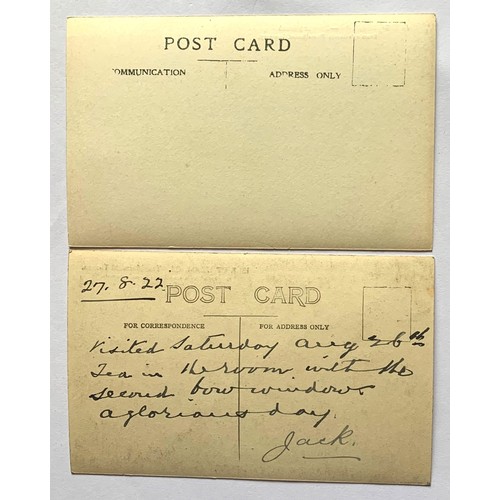 POST CARD
OMMUNICATION ADDRESS ONLY
27. 8. 22
POST CARD
FOR CORRESPONDENCE FOR ADDRESS ONLY
Visited Saturday Aug 26th
Tea in the room with the
second bow window
a glorious day.
Jack.